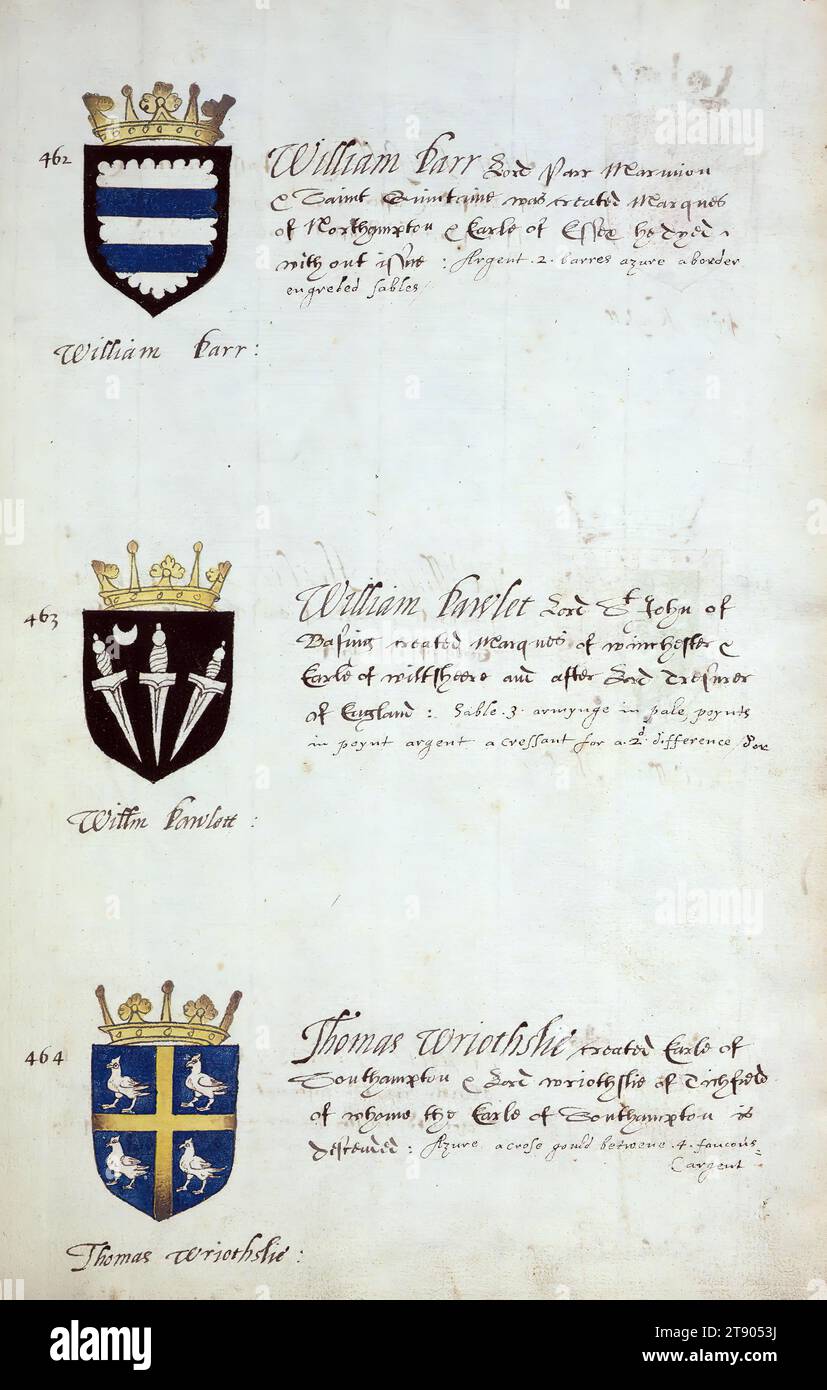 462
William Parr Lord Parr Marmion
& Saint Quintaine was created Marques
of Northampton & Earle of Essex he dyed
with out issue : Argent . 2 . barres azure a border
engreled sables
William Parr :
463
William Pawlet Lord St John of
Basing created Marques of winchester &
Earle of wiltsheere and after Lord Tresurer
of England : Sable . 3 . armynge in pale, poynts
in poynt argent a cressant for a . 2d difference, d'or
Willm Pawlett :
464
Thomas Wriothslie created Earle of
Southampton & Lord wriothslie of Tichfield
of whome the Earle of Southampton is
descended : Azure a crose gould betwene . 4 . faucons
argent
Thomas Wriothslie :
alamy
Image ID: 2T9053J
www.alamy.com